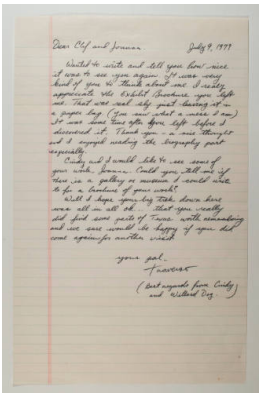 Dear Clif and Joanna July 9, 1977
Wanted to write and tell you how nice
it was to see you again. It was very
kind of you to think about me. I really
appreciate the Exhibit Brochure you left
me. That was real sly just leaving it in
a paper bag (You saw what a mess I am)
It was some time after you left before I
discovered it. Thank you - a nice thought
and I enjoyed reading the biography part
especially.
Cindy and I would like to see some of
your work, Joanna. Could you tell me if
there is a gallery or museum I could write
to for a brochure of your work?
Well I hope your big trek down here
was all in all ok - that you really
did find some parts of worth remembering
and we sure would be happy if you did
come again for another visit.
your pal -
(Best regards from Cindy
and Willard Dog.)